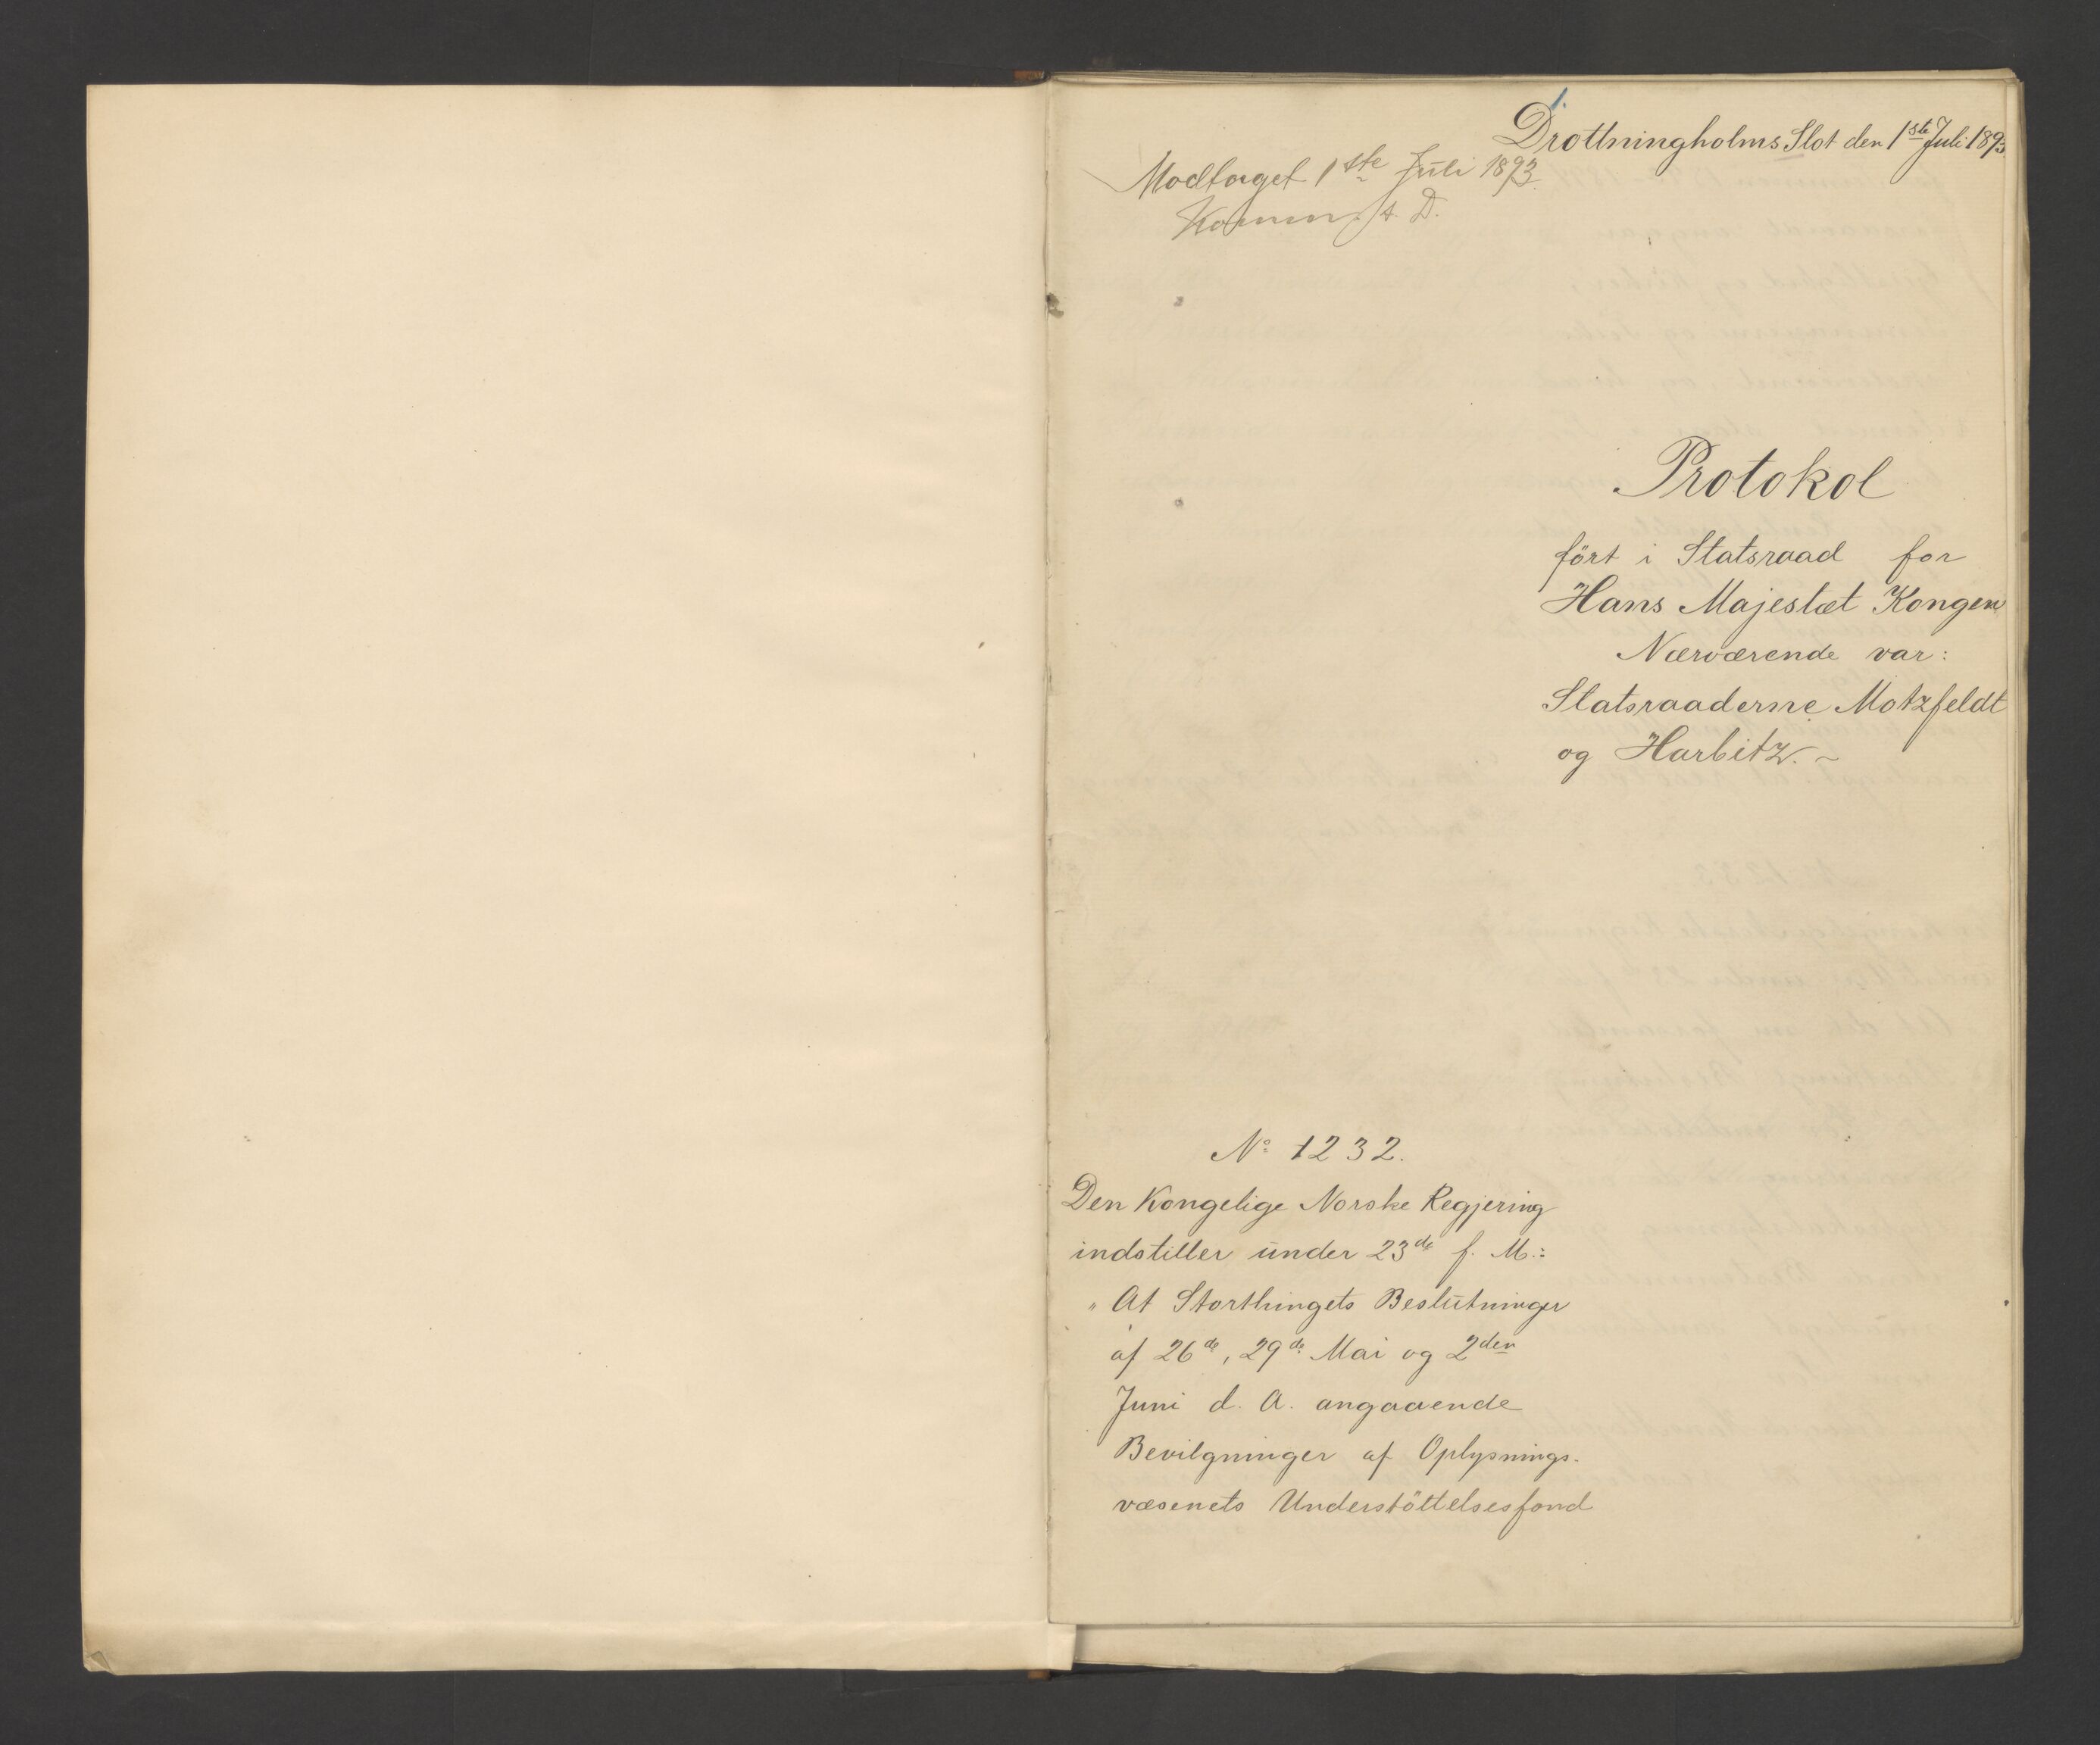 1.
Drottningholms Slot den 1ste Juli 1893
Modtaget 1ste Juli 1893.
Komm. A. D.
Protokol
fört i Statsraad for
Hans Majestæt Kongen
Nærværende var:
Statsraaderne Motzfeldt
og Harbitz. ~
No 1232.
Den Kongelige Norske Regjering
indstiller ūnder 23de f. M.:
„ At Storthingets Beslūtninger
af 26de, 29de Mai og 2den
Juni d. A. angaaende
Bevilgninger af Oplysnings-
væsenets Understöttelsesfond